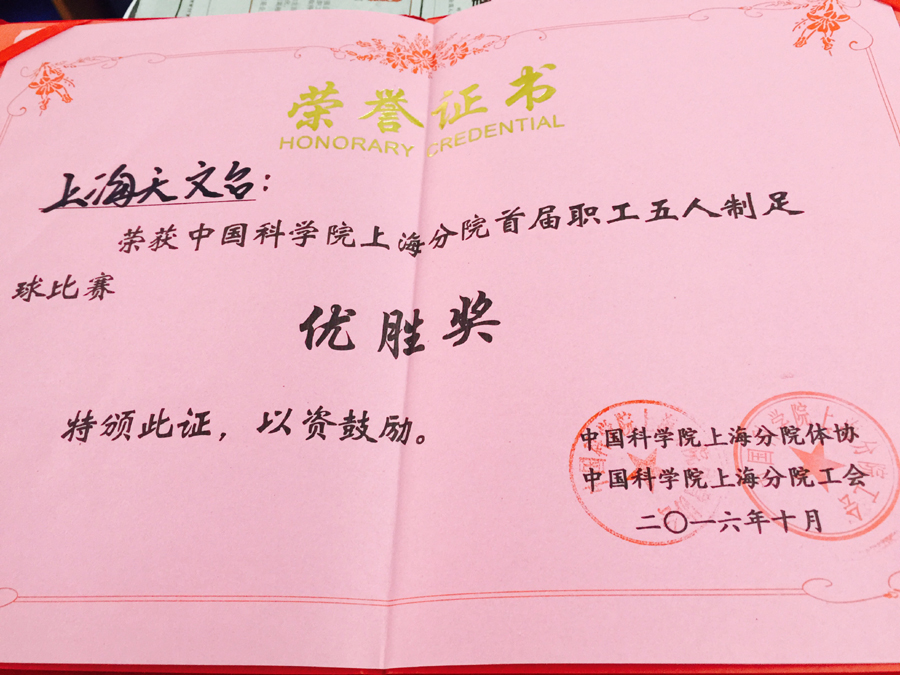 荣誉证书
HONORARY CREDENTIAL
上海天文台：
荣获中国科学院上海分院首届职工五人制足
球比赛
优胜奖
特颁此证，以资鼓励。
中国科学院上海分院体协
中国科学院上海分院工会
二〇一六年十月